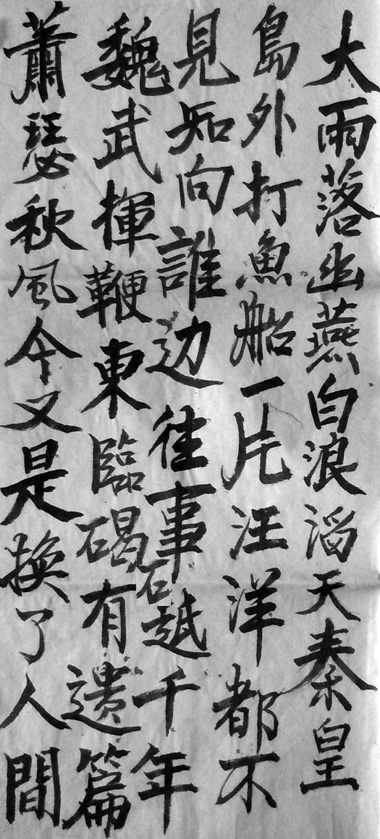 大雨落幽燕白浪滔天秦皇
島外打魚船一片汪洋都不
見知向誰边往事越千年
魏武揮鞭東臨碣石有遺篇
蕭瑟秋風今又是換了人間